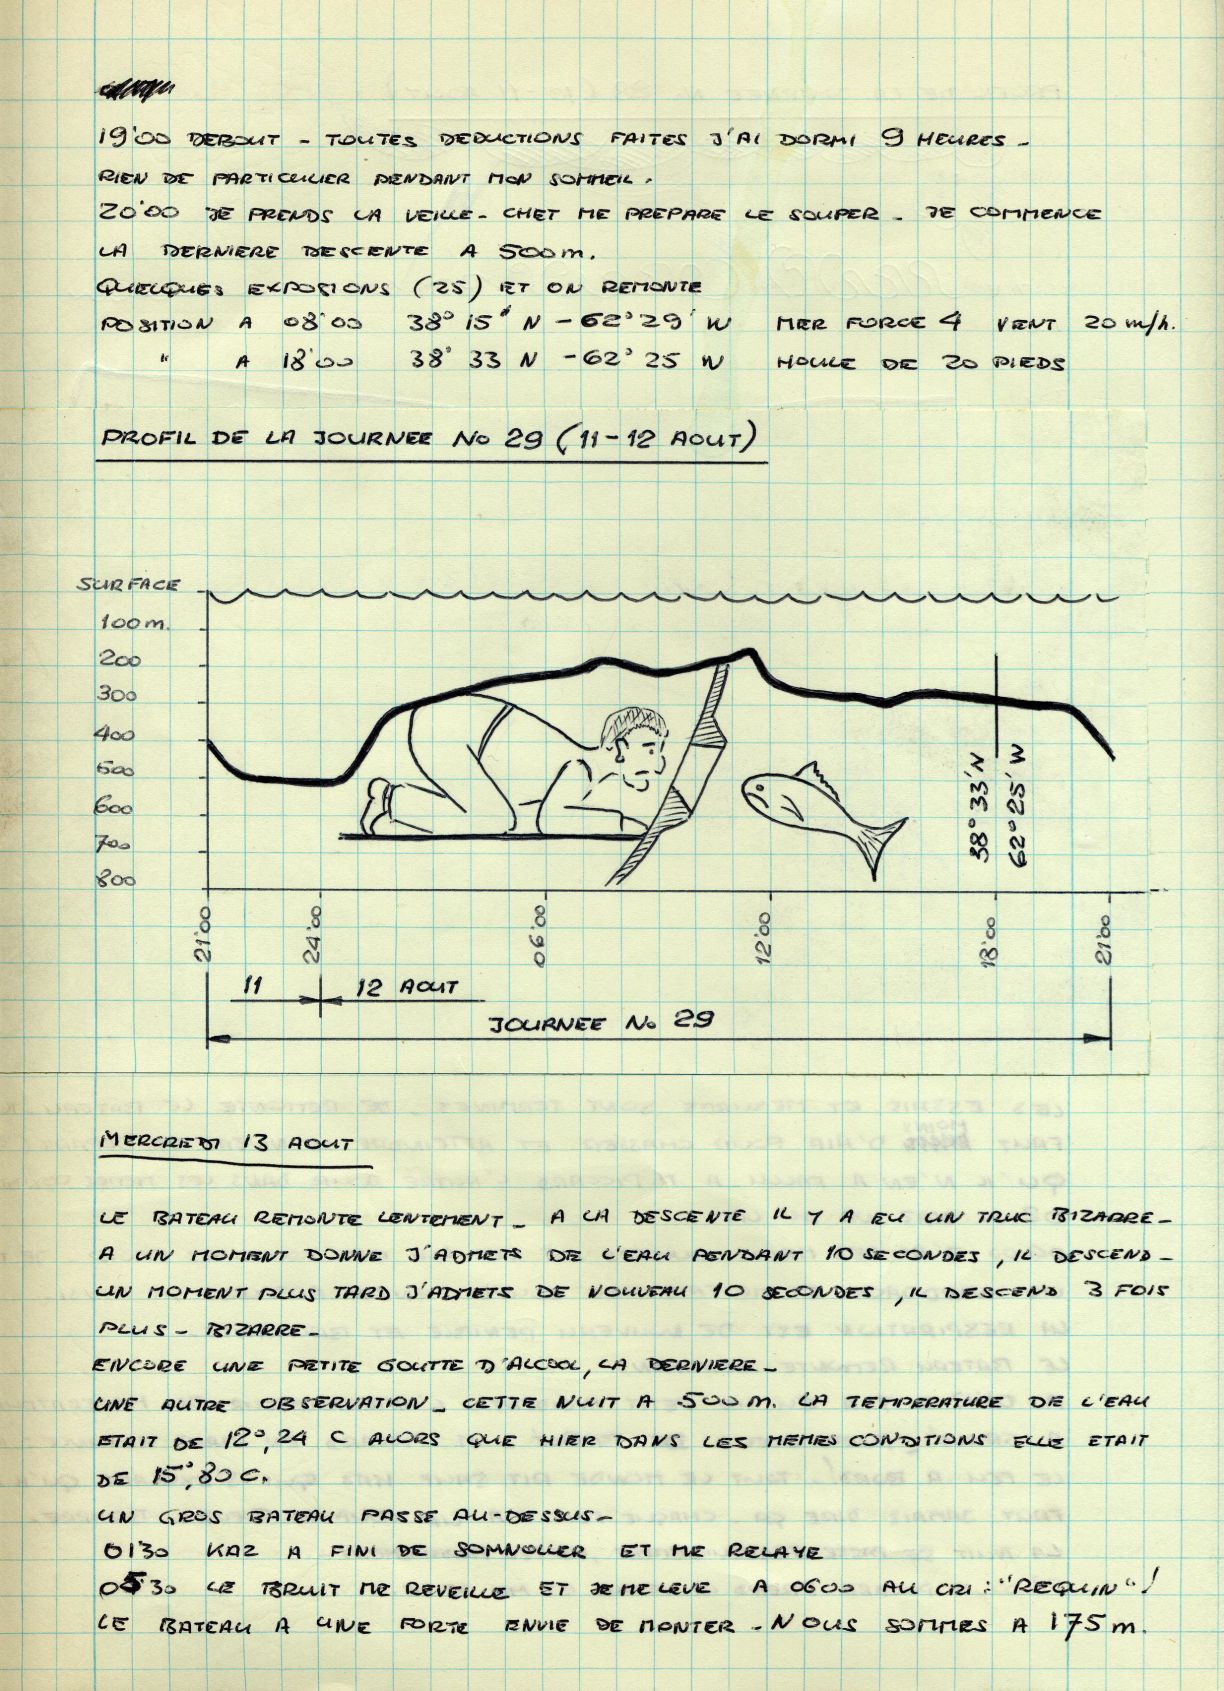 19'00 DEBOUT - TOUTES DEDUCTIONS FAITES J'AI DORMI 9 HEURES -
RIEN DE PARTICULIER PENDANT MON SOMMEIL.
20'00 JE PRENDS LA VEILLE - CHET ME PREPARE LE SOUPER - JE COMMENCE
LA DERNIERE DESCENTE A 500m.
QUELQUES EXPOSIONS (25) ET ON REMONTE
POSITION A 08'00 38° 15' N - 62° 29' W MER FORCE 4 VENT 20 m/h.
" A 18'00 38° 33 N - 62° 25 W HOULE DE 20 PIEDS
PROFIL DE LA JOURNEE No 29 (11-12 AOUT)
SURFACE
100m.
200
300
400
500
600
700
800
38° 33' N
62° 25' W
21'00 24'00 06'00 12'00 18'00 21'00
11 12 AOUT
JOURNEE No 29
MERCREDI 13 AOUT
LE BATEAU REMONTE LENTEMENT - A LA DESCENTE IL Y A EU UN TRUC BIZARRE -
A UN MOMENT DONNE J'ADMETS DE L'EAU PENDANT 10 SECONDES, IL DESCEND -
UN MOMENT PLUS TARD J'ADMETS DE NOUVEAU 10 SECONDES, IL DESCEND 3 FOIS
PLUS - BIZARRE -
ENCORE UNE PETITE GOUTTE D'ALCOOL, LA DERNIERE -
UNE AUTRE OBSERVATION - CETTE NUIT A 500 m. LA TEMPERATURE DE L'EAU
ETAIT DE 12°,24 C ALORS QUE HIER DANS LES MEMES CONDITIONS ELLE ETAIT
DE 15°,80 C.
UN GROS BATEAU PASSE AU-DESSUS -
01'30 KAZ A FINI DE SOMNOLLER ET ME RELAYE
05'30 LE BRUIT ME REVEILLE ET JE ME LEVE A 06'00 AU CRI : "REQUIN"!
LE BATEAU A UNE FORTE ENVIE DE MONTER - NOUS SOMMES A 175 m.